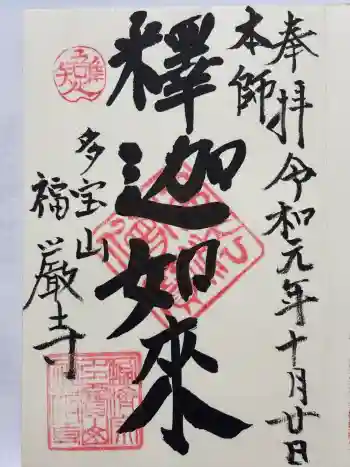 奉拝令和元年十月廿日
本師
釋迦如來
多宝山
福厳寺